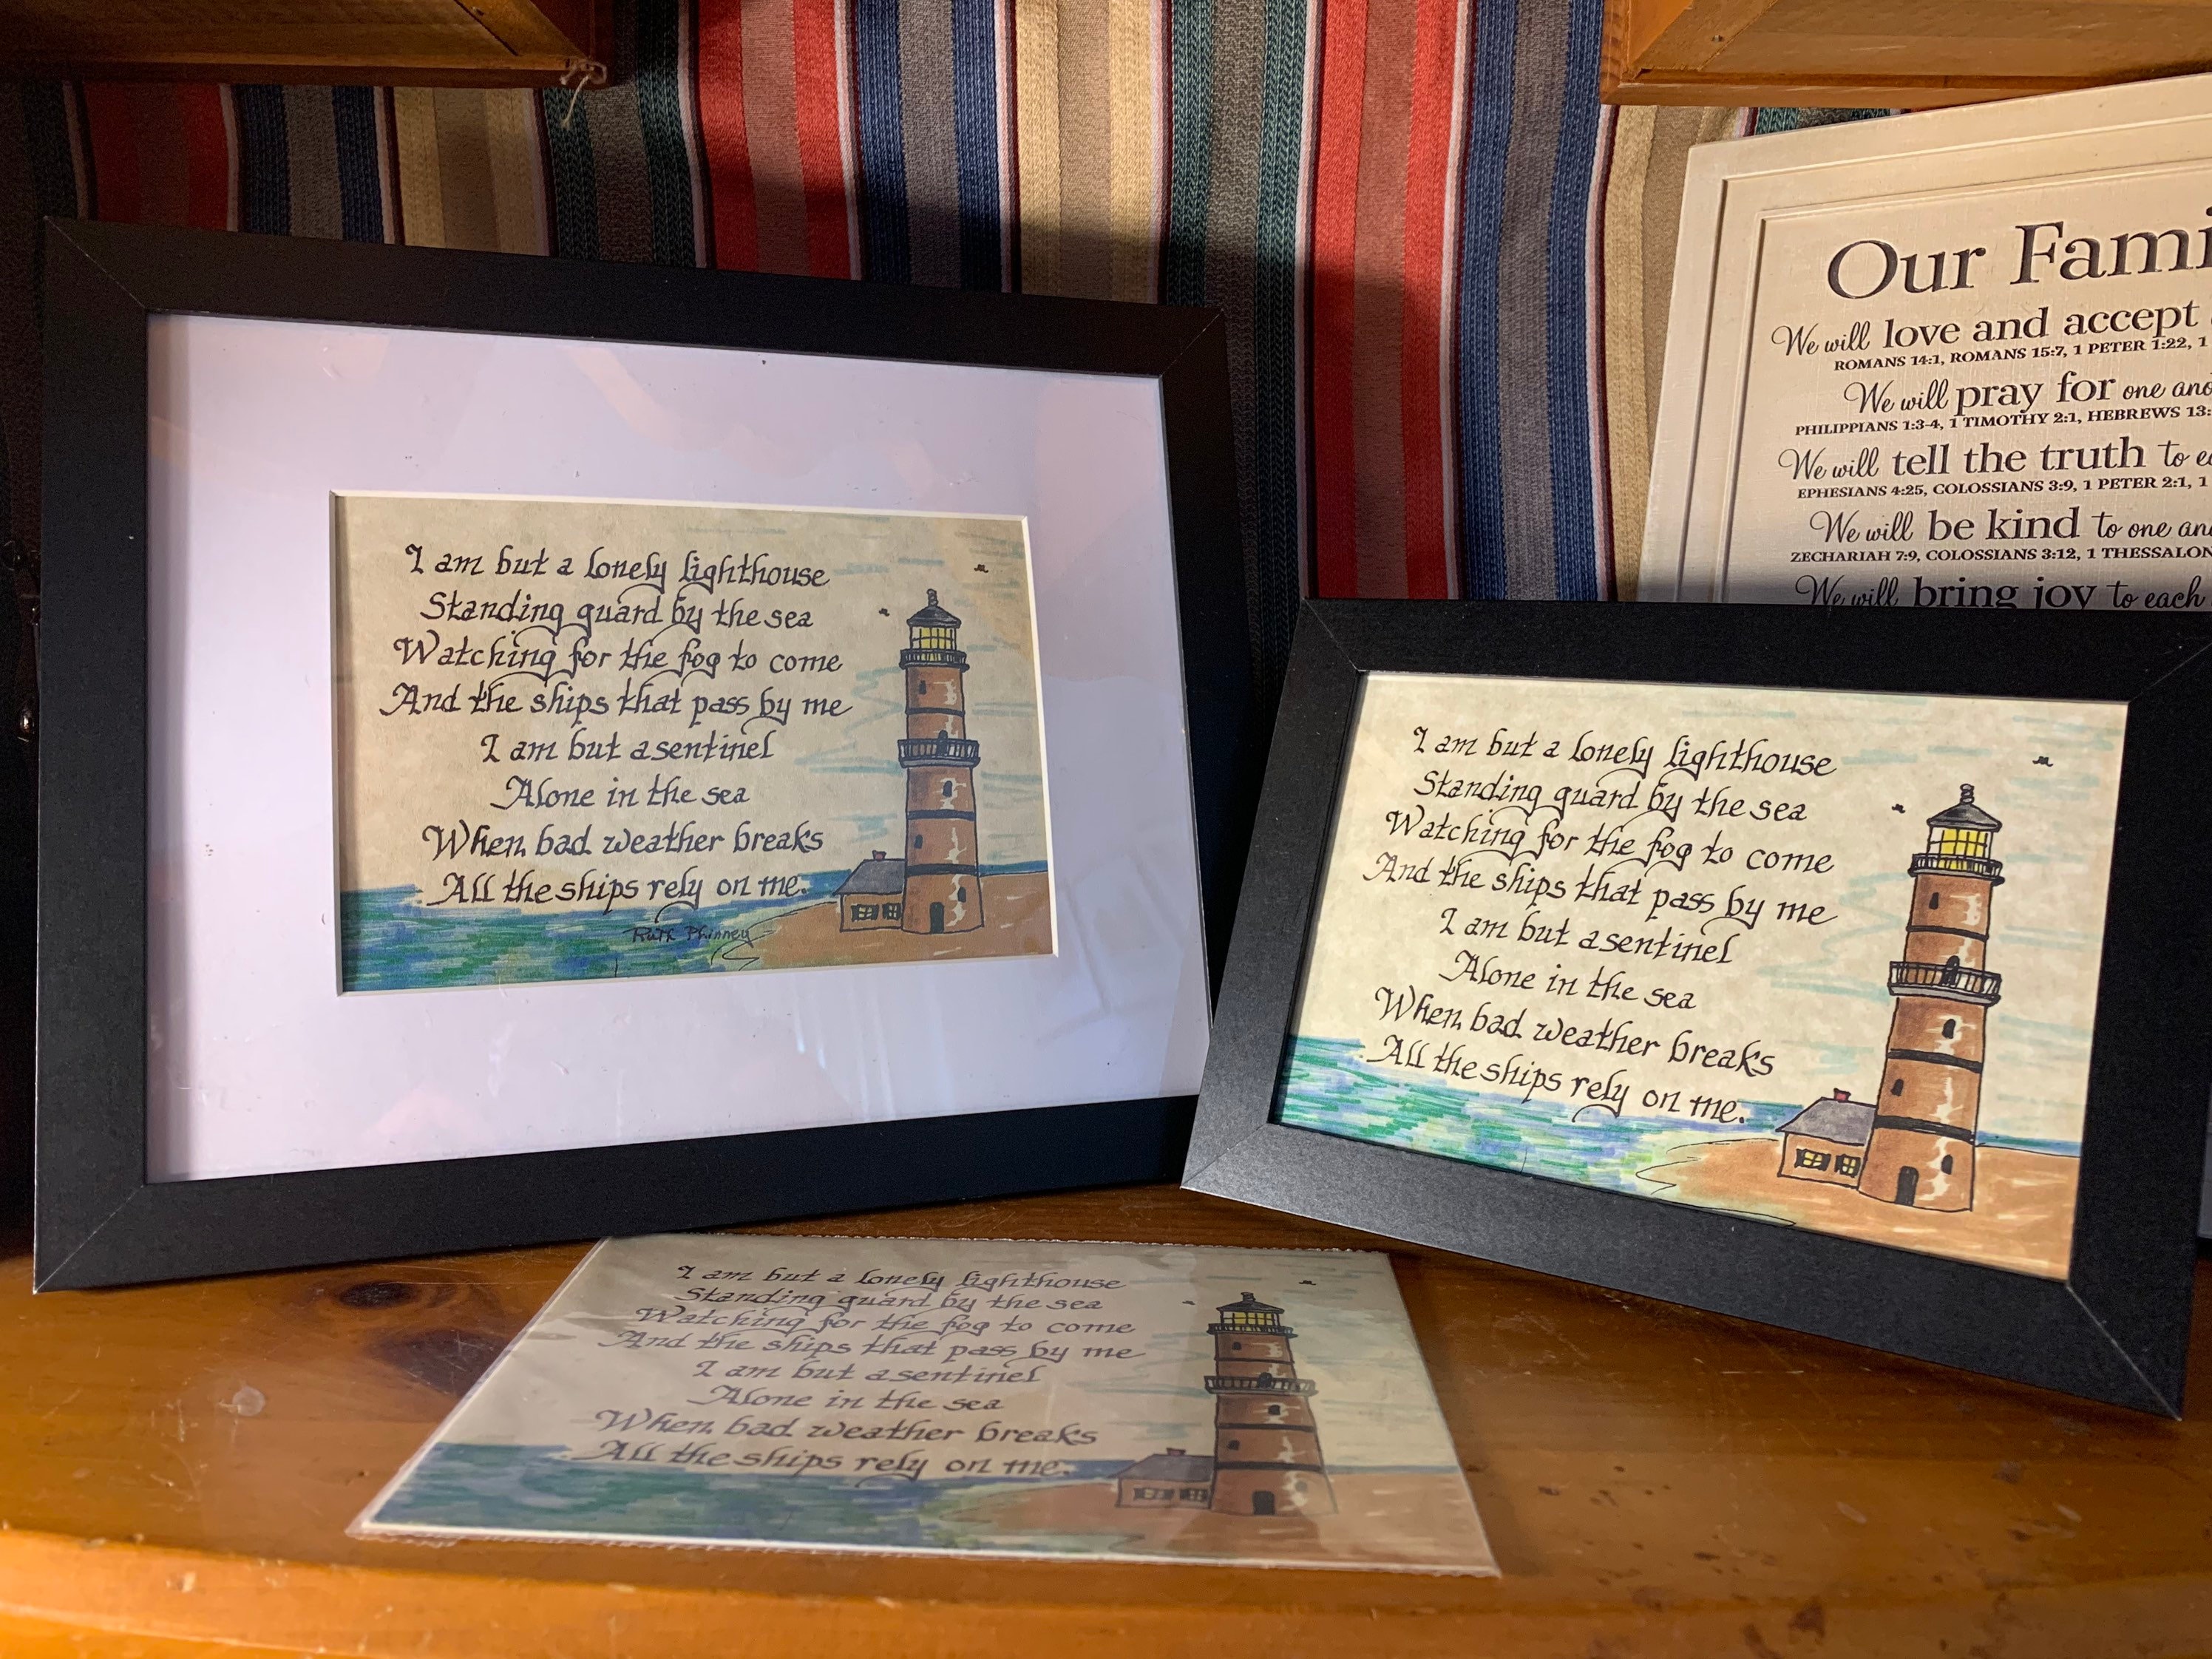 I am but a lonely lighthouse
Standing guard by the sea
Watching for the fog to come
And the ships that pass by me
I am but a sentinel
Alone in the sea
When bad weather breaks
All the ships rely on me.
Ruth Phinney
Our Fami
We will love and accept
ROMANS 14:1, ROMANS 15:7, 1 PETER 1:22, 1
We will pray for one and
PHILIPPIANS 1:3-4, 1 TIMOTHY 2:1, HEBREWS 13:
We will tell the truth to ea
EPHESIANS 4:25, COLOSSIANS 3:9, 1 PETER 2:1, 1
We will be kind to one an
ZECHARIAH 7:9, COLOSSIANS 3:12, 1 THESSALON
We will bring joy to each
I am but a lonely lighthouse
Standing guard by the sea
Watching for the fog to come
And the ships that pass by me
I am but a sentinel
Alone in the sea
When bad weather breaks
All the ships rely on me.
I am but a lonely lighthouse
Standing guard by the sea
Watching for the fog to come
And the ships that pass by me
I am but a sentinel
Alone in the sea
When bad weather breaks
All the ships rely on me.